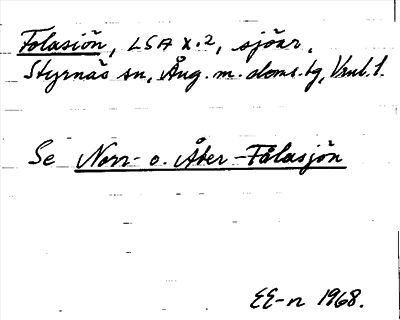 Folasiön, LSA X:2, sjöar,
Styrnäs sn, Ång. m. doms.-tg, Vnl. 1.
Se Norr- o. Åber-Folasjön
EE-n 1968.